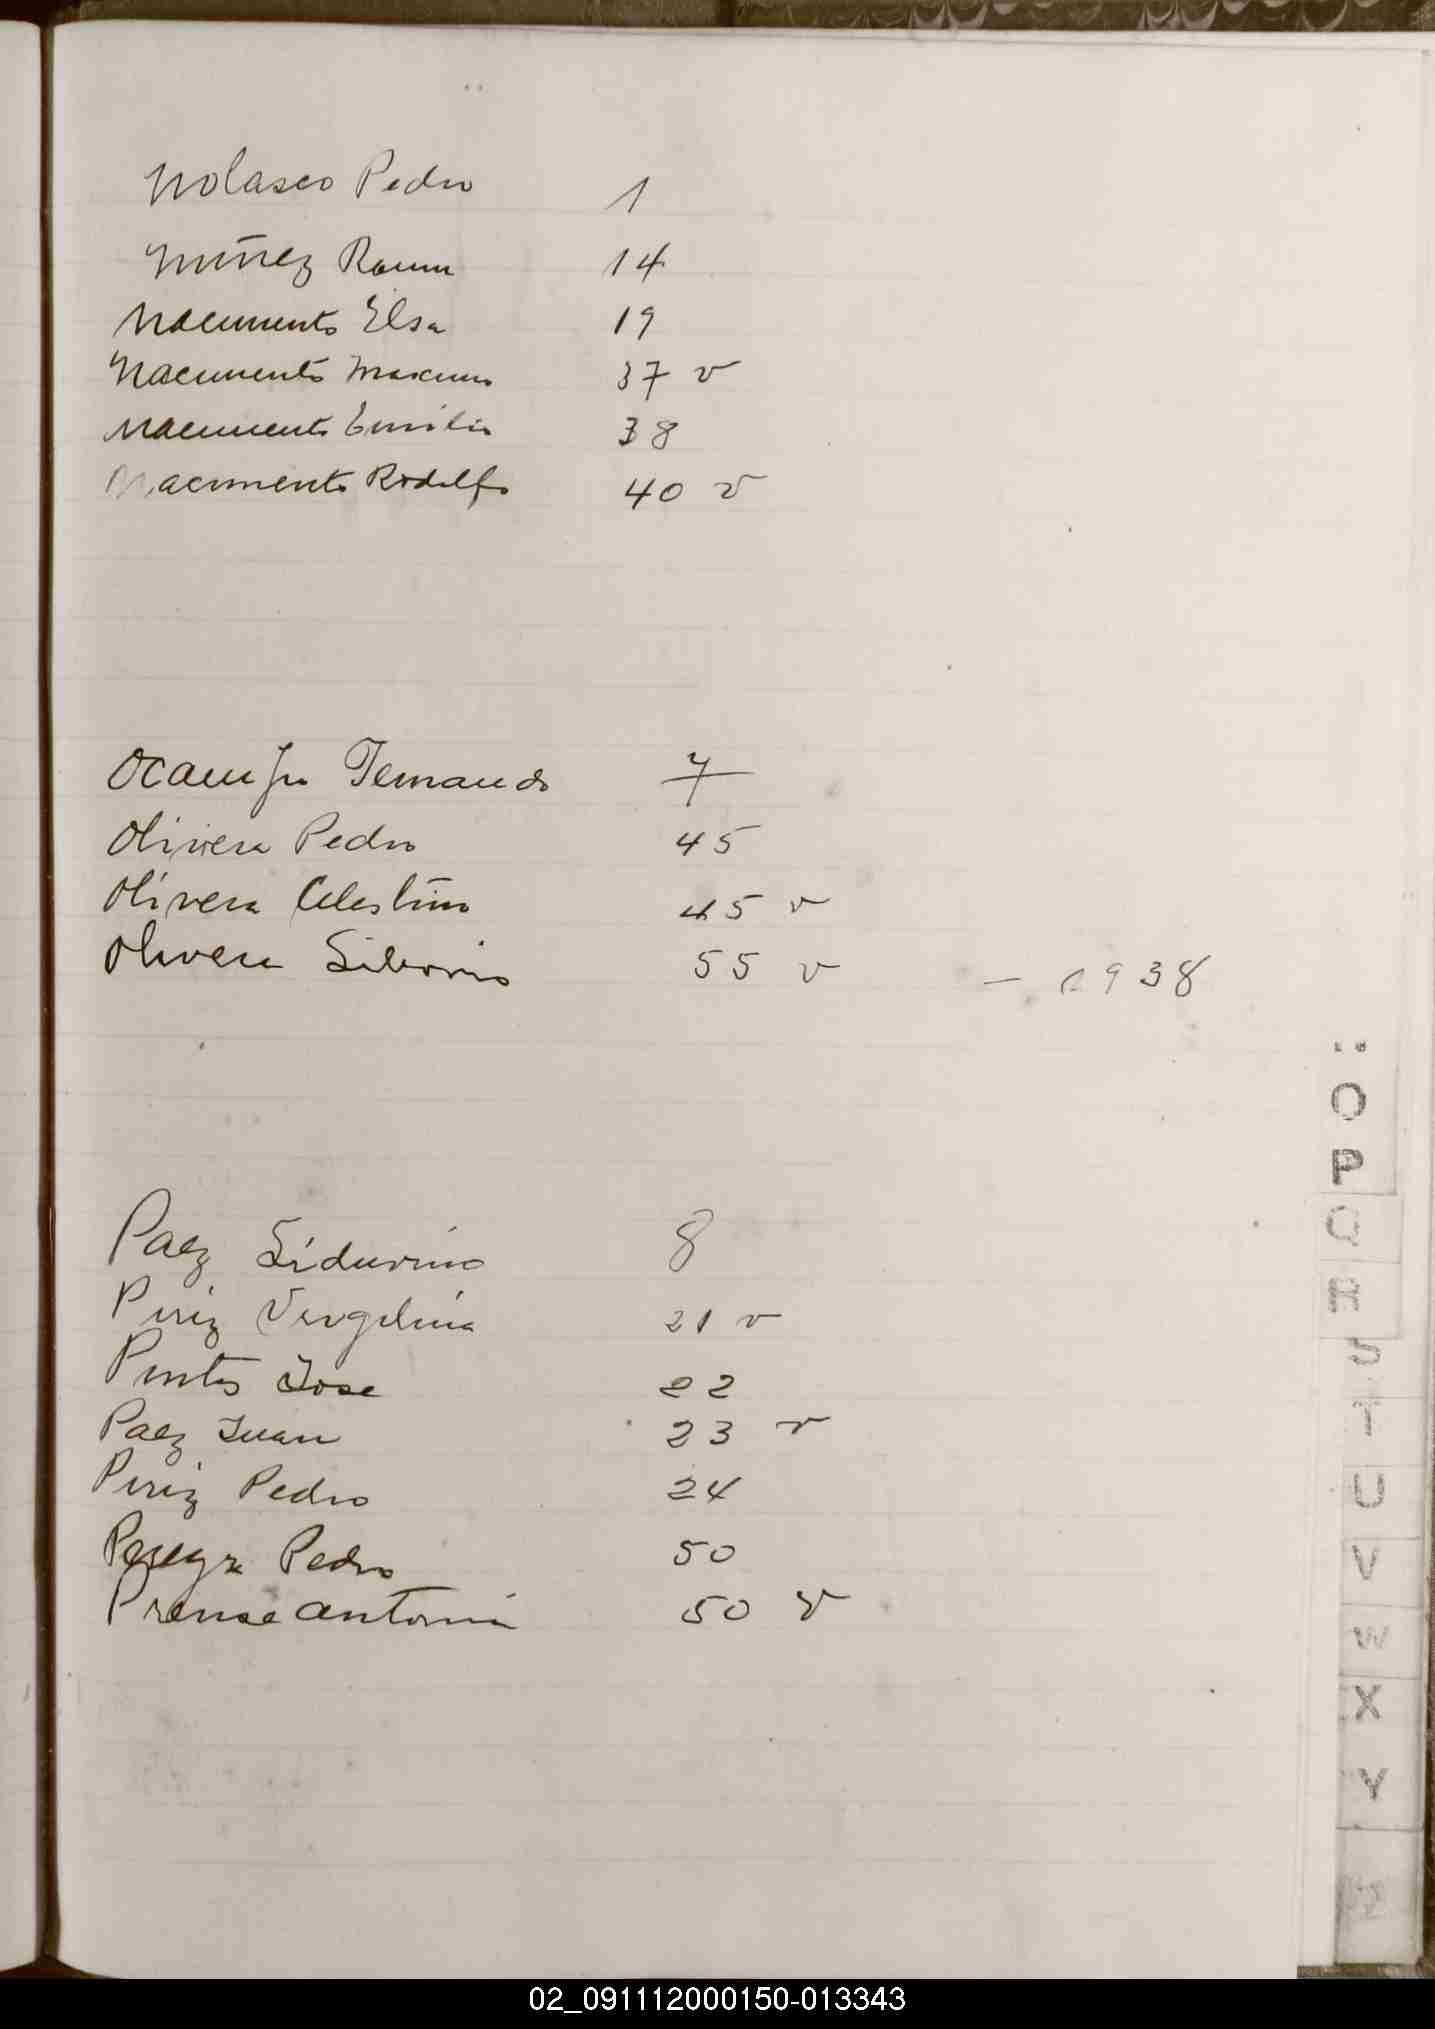 Nolasco Pedro 1
Nuñez Ramn 14
Nacimento Elsa 19
Nacimento Maximo 37 v
Nacimento Emilio 38
Nacimento Rodolfo 40 v
Ocampo Fernando 7
Olivera Pedro 45
Olivera Celestino 45 v
Olivera Liborio 55 v — 1938
Paez Sidurino 8
Piriz Vergilina 21 v
Pintos Jose 22
Paez Juan 23 v
Piriz Pedro 24
Pereyra Pedro 50
Antonia 50 v
O
P
Q
R
S
T
U
V
W
X
Y
02_091112000150-013343